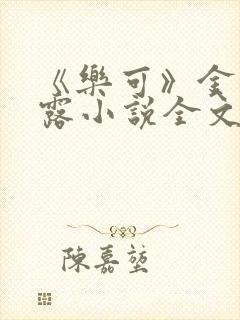 《樂可》金
露小說全文
陳嘉堃